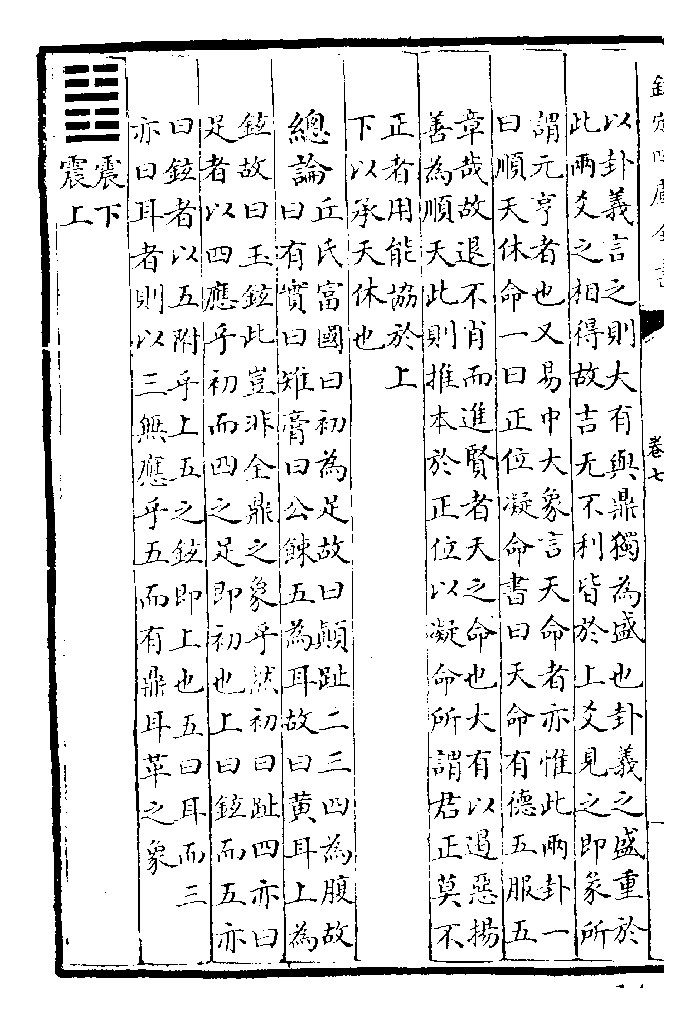 欽定四庫全書
卷七
以卦義言之則大有與鼎獨為盛也卦義之盛重於
此兩爻之相得故吉无不利皆於上爻見之即彖所
謂元亨者也又易中大象言天命者亦惟此兩卦一
曰順天休命一曰正位凝命書曰天命有德五服五
章哉故退不肖而進賢者天之命也大有以遏惡揚
善為順天此則推本於正位以凝命所謂君正莫不
正者用能協於上
下以承天休也
總論丘氏富國曰初為足故曰顛趾二三四為腹故
曰有實曰雉膏曰公餗五為耳故曰黄耳上為
鉉故曰玉鉉此豈非全鼎之象乎然初曰趾四亦曰
足者以四應乎初而四之足即初也上曰鉉而五亦
曰鉉者以五附乎上五之鉉即上也五曰耳而三
亦曰耳者則以三無應乎五而有鼎耳革之象
震下
震上